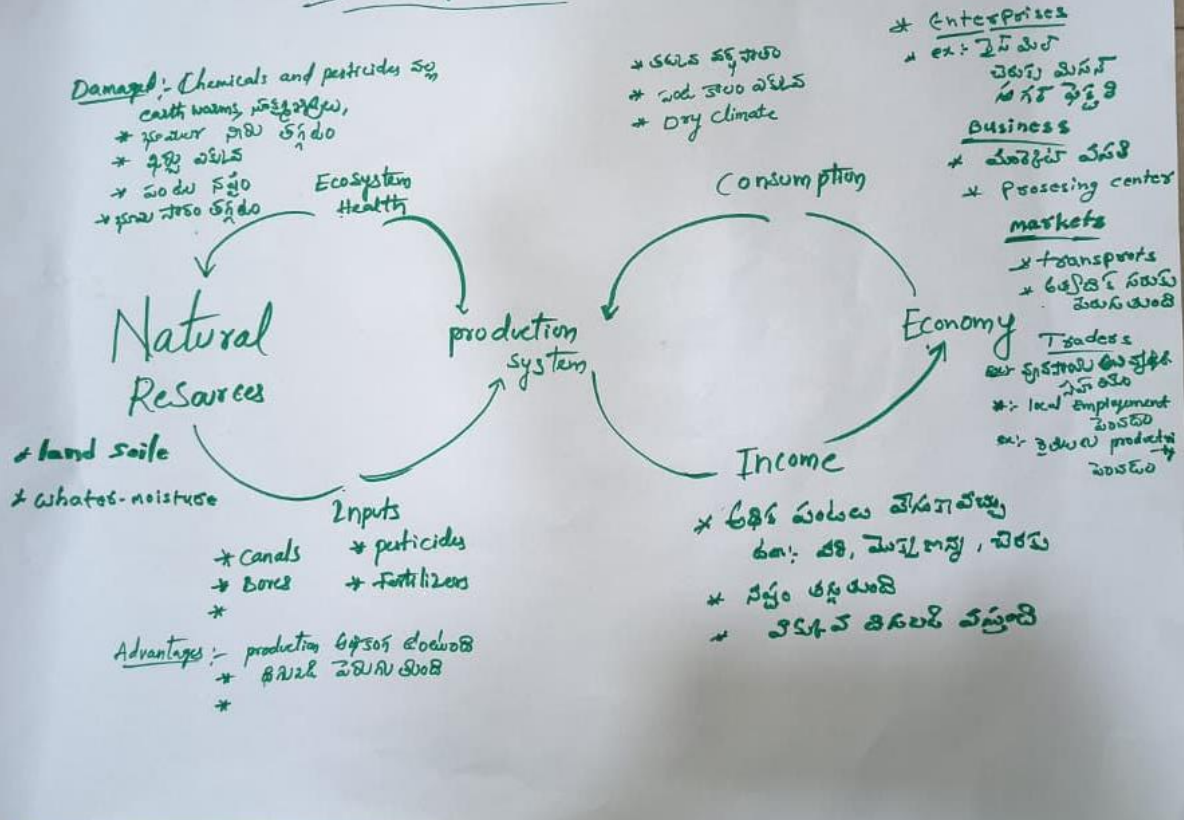 Damaged:- Chemicals and pesticides వల్ల
earth warms, సూక్ష్మజీవులు,
* భూమిలో నీరు తగ్గడం
* ఖర్చు ఎక్కువ
* పంటలు నష్టం
* భూమి సారం తగ్గడం
Ecosystem
Health
Natural
Resources
* land soile
* whater-moisture
Inputs
* Canals
* Bores
*
* pesticides
* Fertilizers
Advantages:- production అధికంగా
* దిగుబడి పెరుగుతుంది
*
production
system
* ఎక్కువ
* Dry Climate
Consumption
Economy
Income
* అధిక పంటలు వేసుకోవచ్చు
ఉదా:- వరి, మొక్కజొన్న, చెరకు
* నష్టం తగ్గుతుంది
* ఎక్కువ దిగుబడి వస్తుంది
* Enterprises
* ex:- రైస్ మిల్
చెరుకు మిషన్
Business
* మార్కెట్ వసతి
* Prosesing center
markets
* transprots
పెరుగుతుంది
Traders
*:- local Employement
పెంచడం
ex:- రైతులు production
పెంచడం